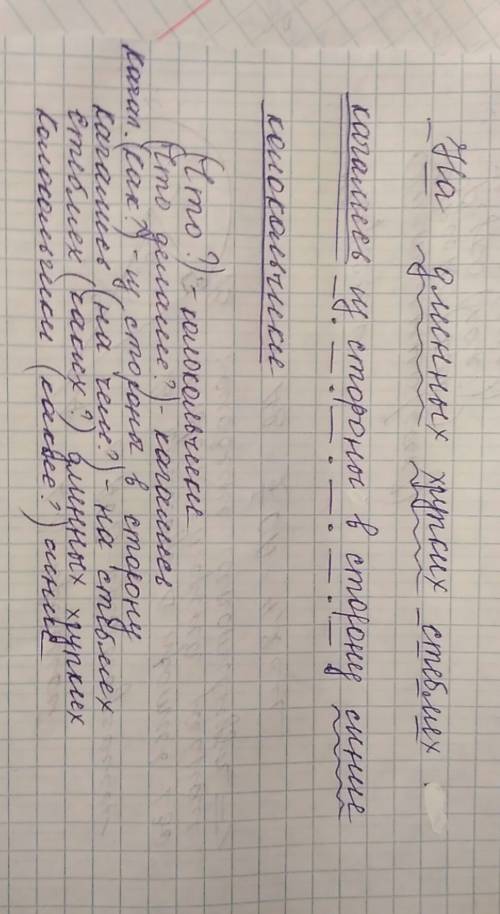 На длинных хрупких стеблях
качались из стороны в сторону синие
колокольчики
(Что?) - колокольчики
(Что делали?) - качались
качал. (как?) - из стороны в сторону
качались (на чем?) - на стеблях
стеблях (каких?) длинных хрупких
колокольчики (какие?) синие